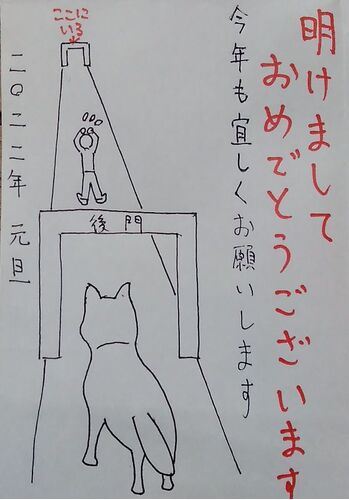 明けまして
おめでとうございます
今年も宜しくお願いします
ここに
いる
後門
二〇二二年 元旦